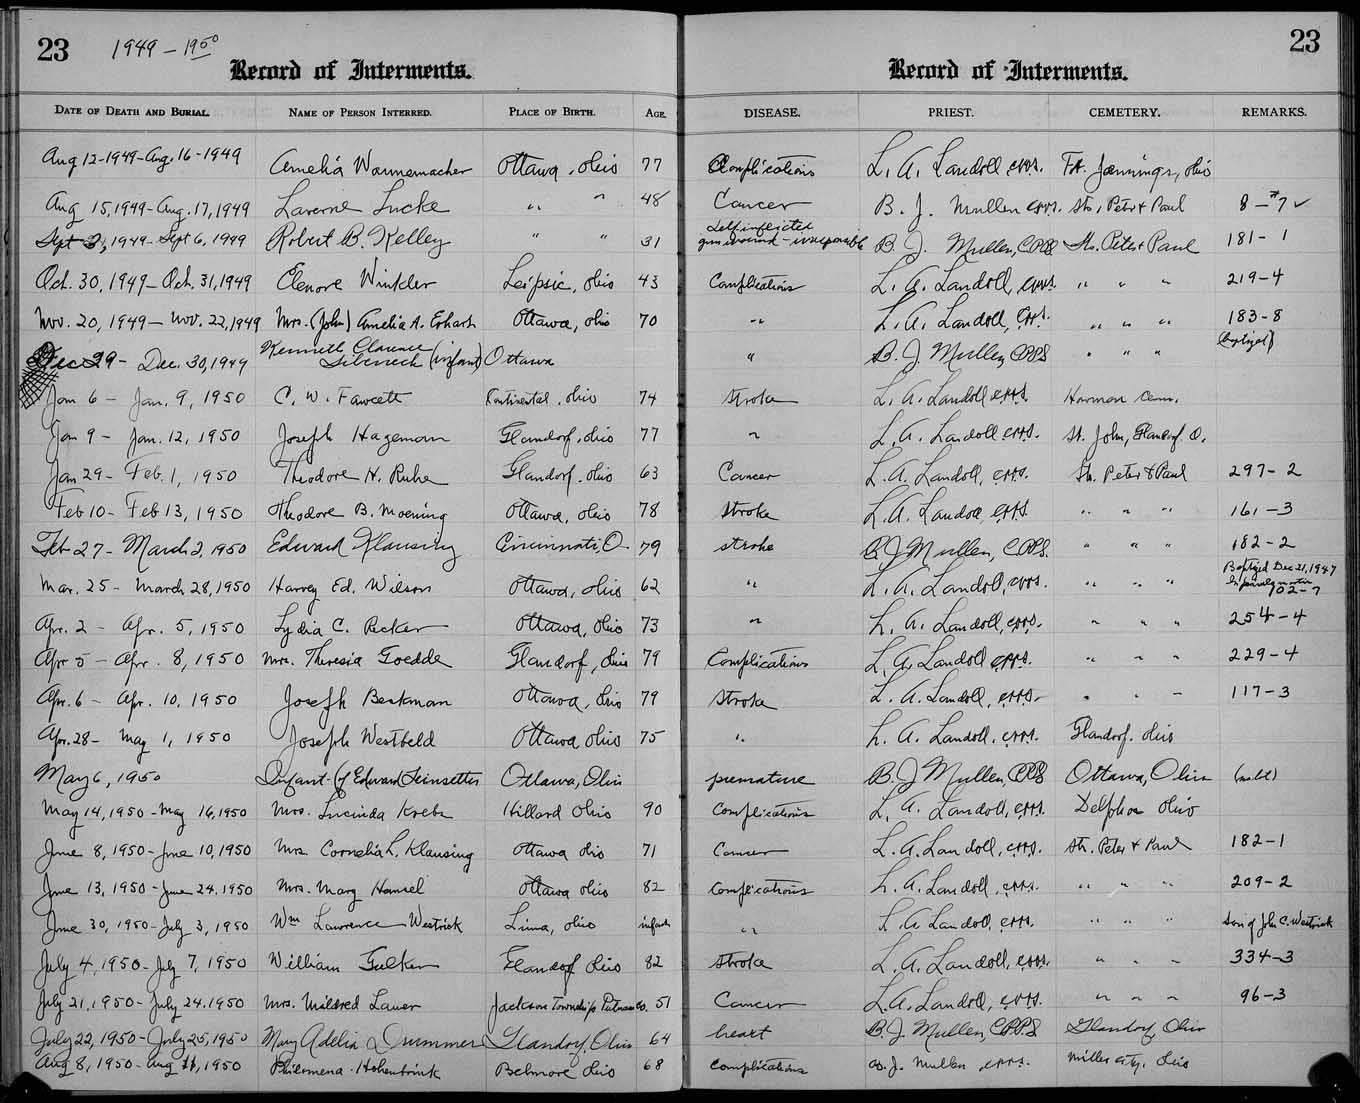 23 1949 - 1950 23
Record of Interments. Record of Interments.
DATE OF DEATH AND BURIAL. NAME OF PERSON INTERRED. PLACE OF BIRTH. AGE. DISEASE. PRIEST. CEMETERY. REMARKS.
Aug 12-1949-Aug. 16-1949 Amelia Wannemacher Ottawa, Ohio 77 Complications L. A. Landoll, cpps. Ft. Jennings, Ohio
Aug 15, 1949-Aug. 17, 1949 Laverne Lucke " " 48 Cancer B. J. Mullen cpps. Sts. Peter & Paul 8-#7 ✓
Sept 3, 1949-Sept 6, 1949 Robert B. Kelley " " 31 Self inflicted gun wound - irresponsible B. J. Mullen, CPPS Sts. Peter & Paul 181-1
Oct. 30, 1949-Oct. 31, 1949 Elenore Winkler Leipsic, Ohio 43 Complications L. A. Landoll, cpps. " " " 219-4
Nov. 20, 1949-Nov. 22, 1949 Mrs. (John) Amelia A. Erhart Ottawa, Ohio 70 " L. A. Landoll, cpps. " " " 183-8
Dec 29 - Dec. 30, 1949 Kenneth Clarence (infant) Ottawa " B. J. Mullen, CPPS " " " (baptized)
Jan 6 - Jan. 9, 1950 C. W. Fawcett Continental, Ohio 74 Stroke L. A. Landoll cpps. Harman Cem.
Jan 9 - Jan. 12, 1950 Joseph Hageman Glandorf, Ohio 77 " L. A. Landoll cpps. St. John, Glandorf O.
Jan 29 - Feb. 1, 1950 Theodore H. Ruhe Glandorf, Ohio 63 Cancer L. A. Landoll, cpps. Sts. Peter & Paul 297-2
Feb 10 - Feb 13, 1950 Theodore B. Moening Ottawa, Ohio 78 Stroke L. A. Landoll, cpps " " " 161-3
Feb 27 - March 2, 1950 Edward Klausing Cincinnati, O 79 stroke B. J. Mullen, CPPS. " " " 182-2
Mar. 25 - March 28, 1950 Harvey Ed. Wilson Ottawa, Ohio 62 " L. A. Landoll, cpps. " " " Baptized Dec 21, 1947 102-7
Apr. 2 - Apr. 5, 1950 Lydia C. Recker Ottawa, Ohio 73 " L. A. Landoll, cpps. " " " 254-4
Apr 5 - Apr. 8, 1950 Mrs. Theresia Goedde Glandorf, Ohio 79 Complications L. A. Landoll cpps. " " " 229-4
Apr. 6 - Apr. 10, 1950 Joseph Beckman Ottawa, Ohio 79 Stroke L. A. Landoll, cpps. " " " 117-3
Apr. 28 - May 1, 1950 Joseph Westbeld Ottawa Ohio 75 " L. A. Landoll, cpps. Glandorf, Ohio
May 6, 1950 Infant of Edward Leinsetter Ottawa, Ohio premature B. J. Mullen, CPPS Ottawa, Ohio
May 14, 1950-May 16, 1950 Mrs. Lucinda Krebs Hillard Ohio 90 Complications L. A. Landoll, cpps. Delphos Ohio
June 8, 1950-June 10, 1950 Mrs Cornelia L. Klausing Ottawa Ohio 71 Cancer L. A. Landoll, cpps. Sts. Peter & Paul 182-1
June 13, 1950-June 24, 1950 Mrs. Mary Hansel Ottawa Ohio 82 Complications L. A. Landoll, cpps. " " " 209-2
June 30, 1950-July 3, 1950 Wm Lawrence Westrick Lima, Ohio infant " L. A. Landoll, cpps. " " " Son of John C. Westrick
July 4, 1950-July 7, 1950 William Fulker Glandorf Ohio 82 Stroke L. A. Landoll, cpps. " " " 334-3
July 21, 1950-July 24, 1950 Mrs. Mildred Lauer Jackson Township Putnam Co. 51 Cancer L. A. Landoll, cpps. " " " 96-3
July 22, 1950-July 25, 1950 Mary Adelia Drummer Glandorf, Ohio 64 heart B. J. Mullen, CPPS Glandorf, Ohio
Aug 8, 1950-Aug 11, 1950 Philomena Hohenbrink Belmore Ohio 68 Complications B. J. Mullen cpps. Miller City, Ohio